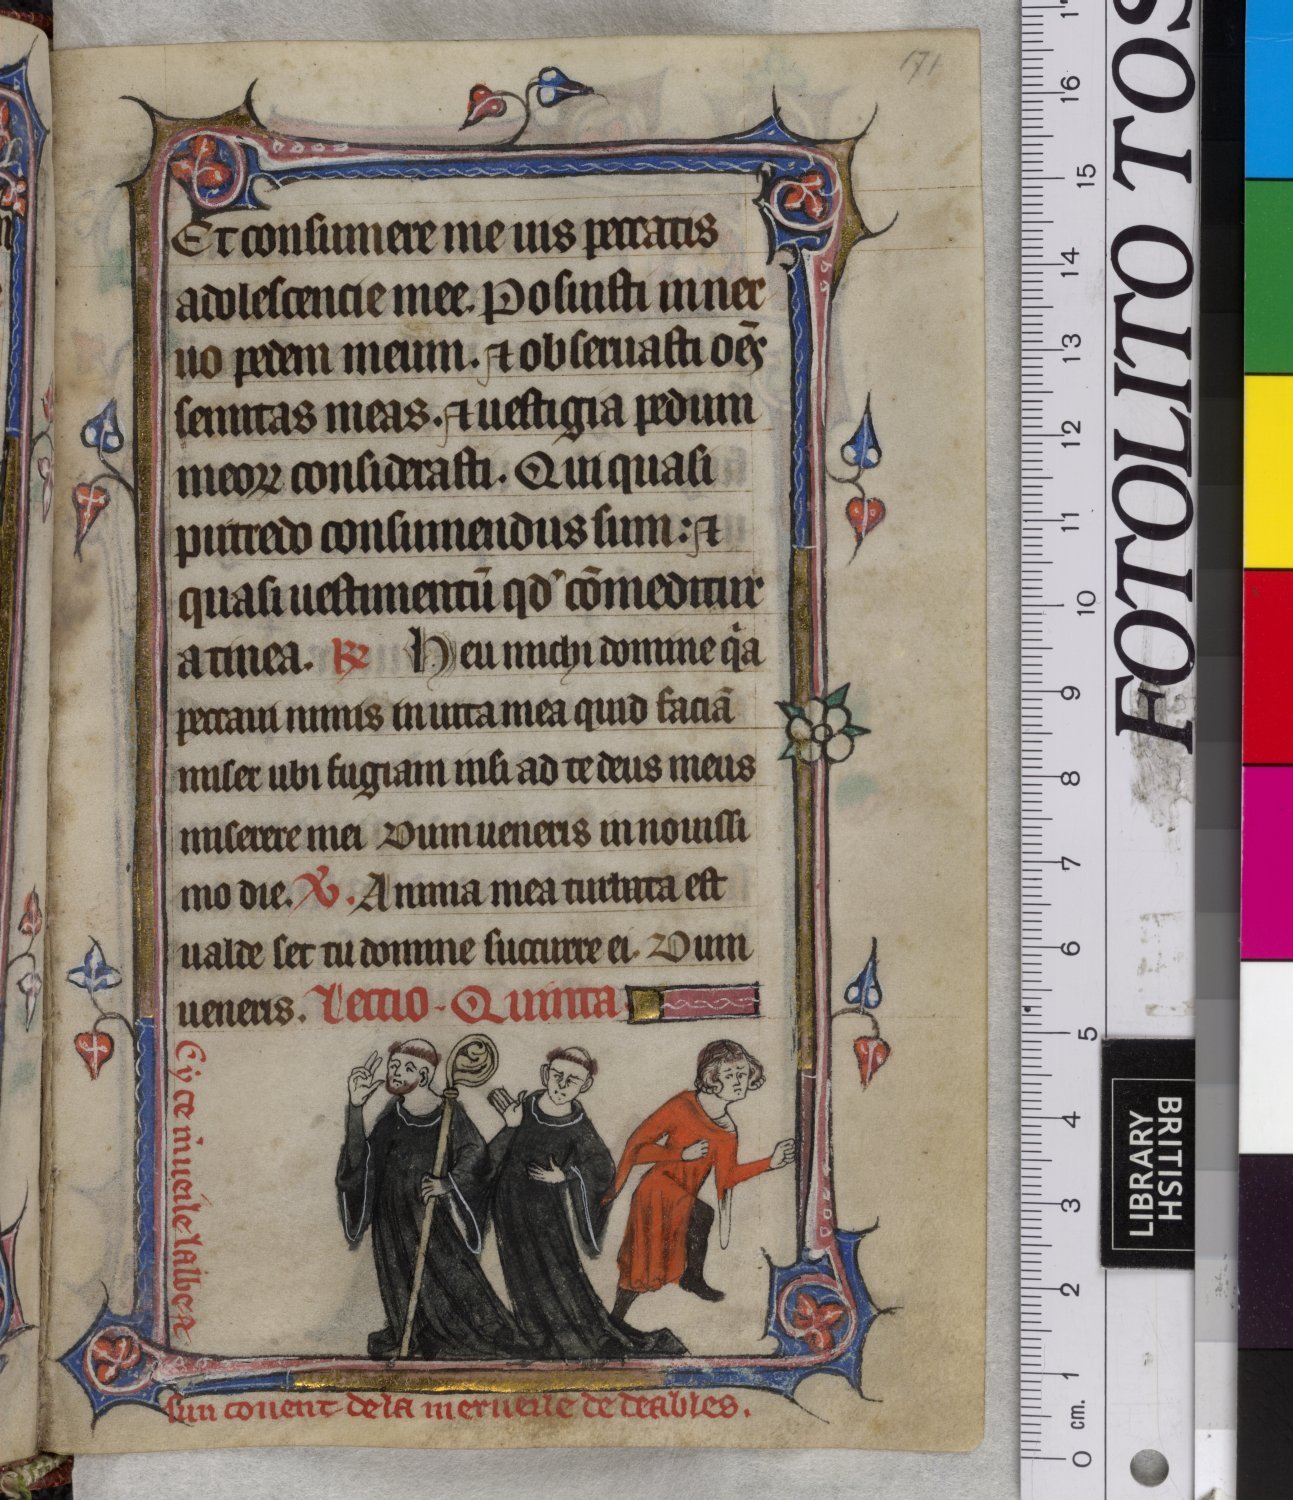 171
Et consumere me uis peccatis
adolescencie mee. Posuisti in ner
uo pedem meum. et obseruasti oēs
semitas meas. et uestigia pedum
meoꝝ considerasti. Qui quasi
putredo consumendus sum: et
quasi uestimentū qd' cōmeditur
a tinea. ℟ Heu michi domine qͣa
peccaui nimis in uita mea quid faciā
miser ubi fugiam nisi ad te deus meus
miserere mei Dum ueneris in nouissi
mo die. ℣. Anima mea turbata est
ualde set tu domine succurre ei. Dum
ueneris. Lectio. Quinta
Cy ce mueile labbe et
sun couent de la merueile de deables.
FOTOLITO TOSO
BRITISH
LIBRARY
0 cm. 1 2 3 4 5 6 7 8 9 10 11 12 13 14 15 16